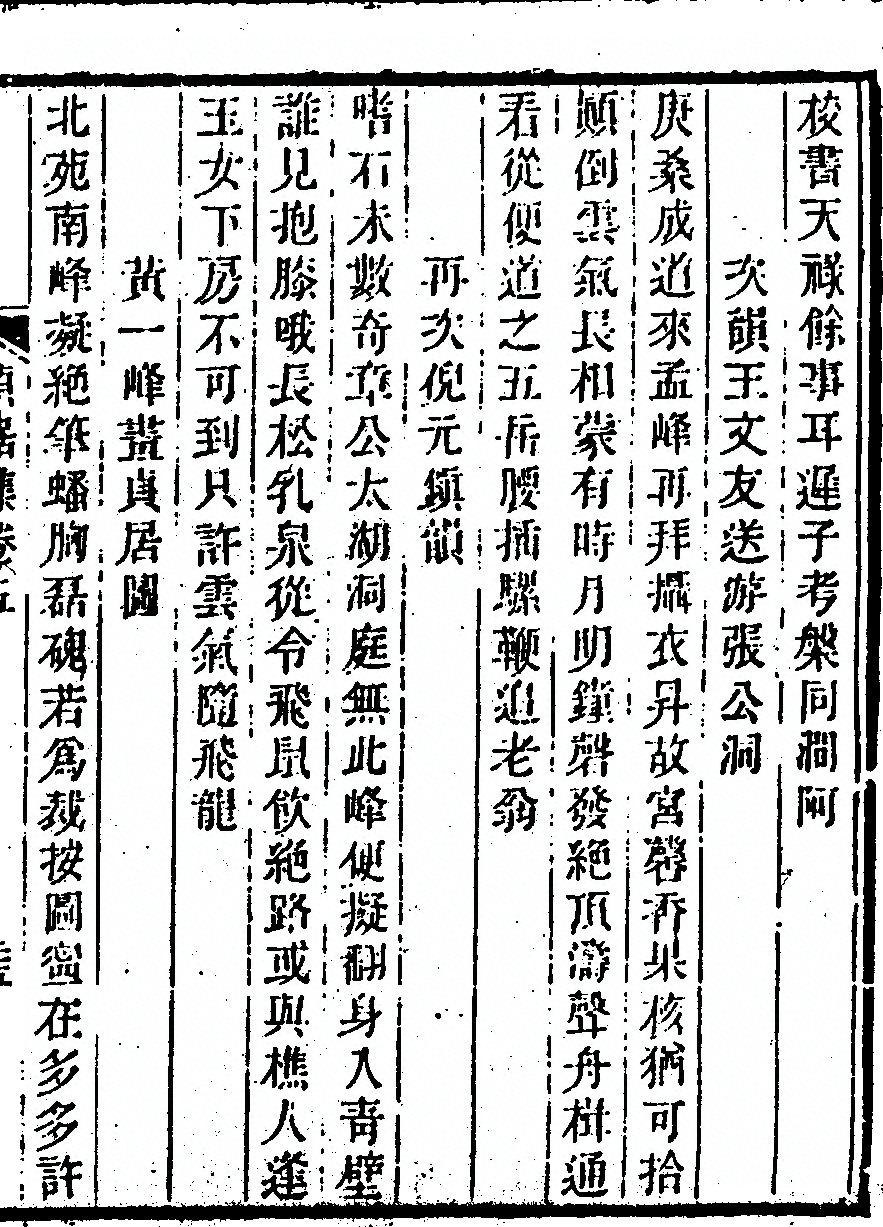 校書天祿餘事耳遲子考槃同澗阿
次韻王文友送游張公洞
庚桑成道來孟峰再拜攝衣升故宮礱斋果核猶可拾
顚倒雲氣長相蒙有時月明鎖磬發絶頂濤聲舟樹通
看從便道之五岳腰插騾鞭追老翁
再次倪元鎭韻
嗜石未數奇章公太湖洞庭無此峰便擬翻身入青壁
誰見抱膝哦長松乳泉從令飛鼠飮絶路或與樵人逢
玉女下房不可到只許雲氣隨飛龍
黃一峰畫貞居圖
北苑南峰凝絶筆蟠胸磊磈若爲裁按圖巒在多多許
貞居集卷五